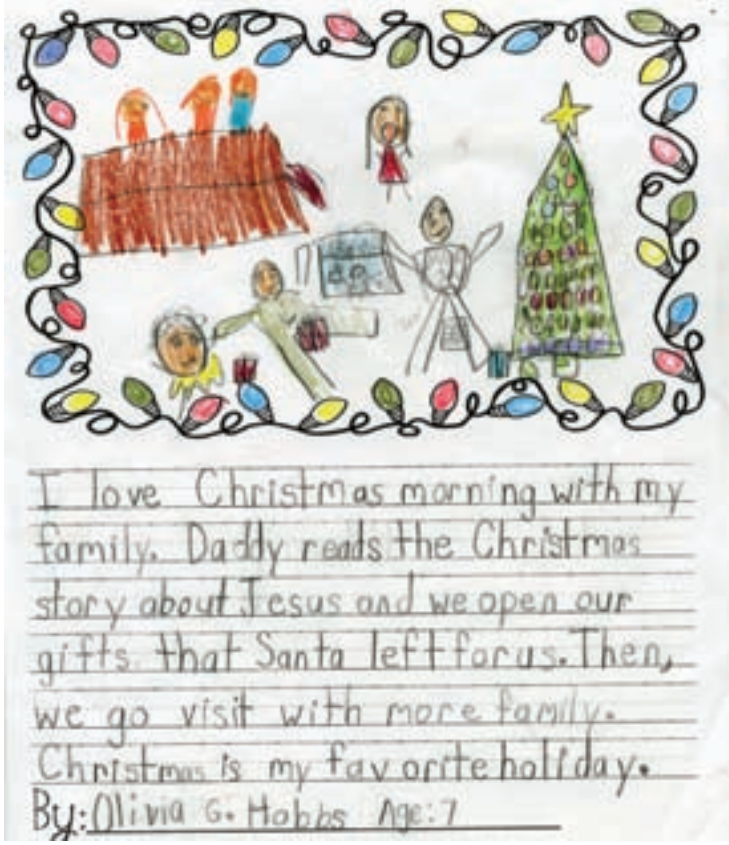 I love Christmas morning with my
family. Daddy reads the Christmas
story about Jesus and we open our
gifts that Santa left for us. Then,
we go visit with more family.
Christmas is my favorite holiday.
By: Olivia G. Hobbs Age: 7